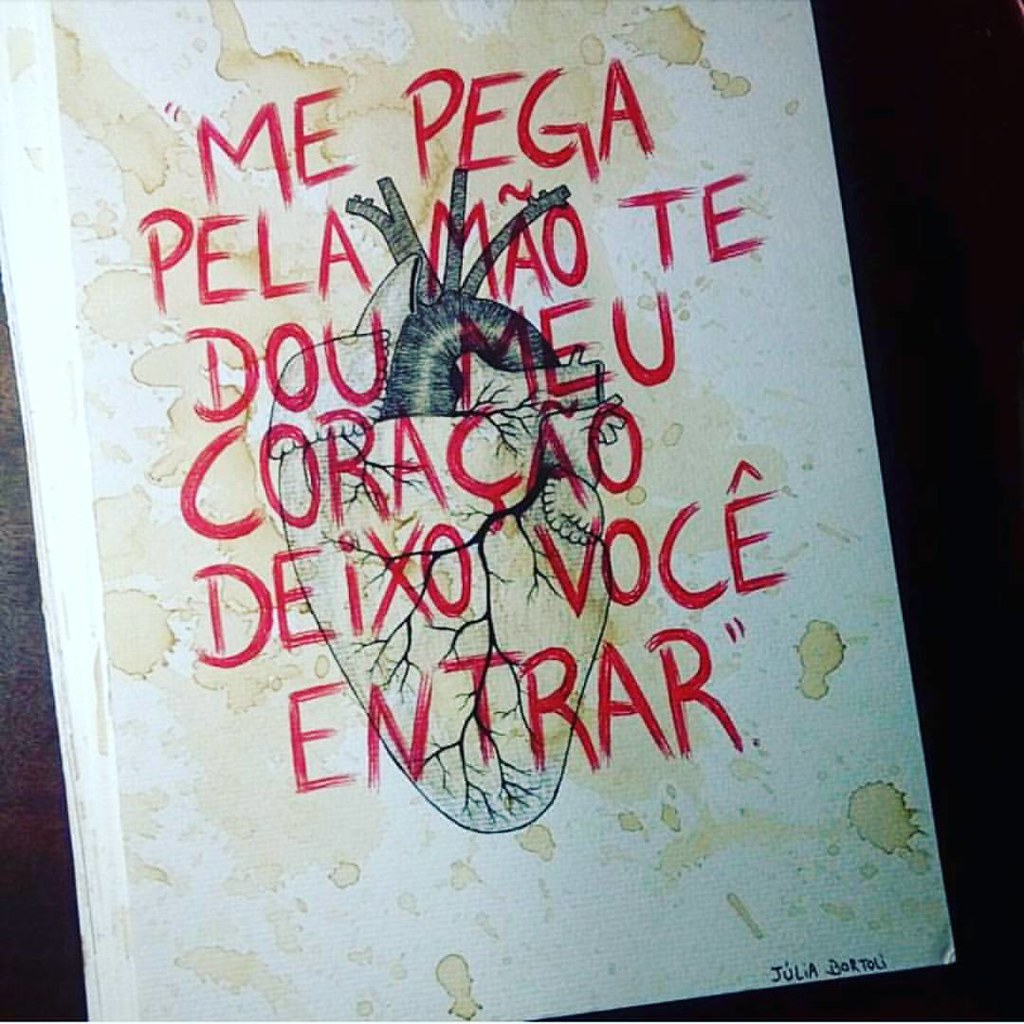 "ME PEGA
PELA MÃO TE
DOU MEU
CORAÇÃO
DEIXO VOCÊ
ENTRAR".
JÚLIA BORTOLI